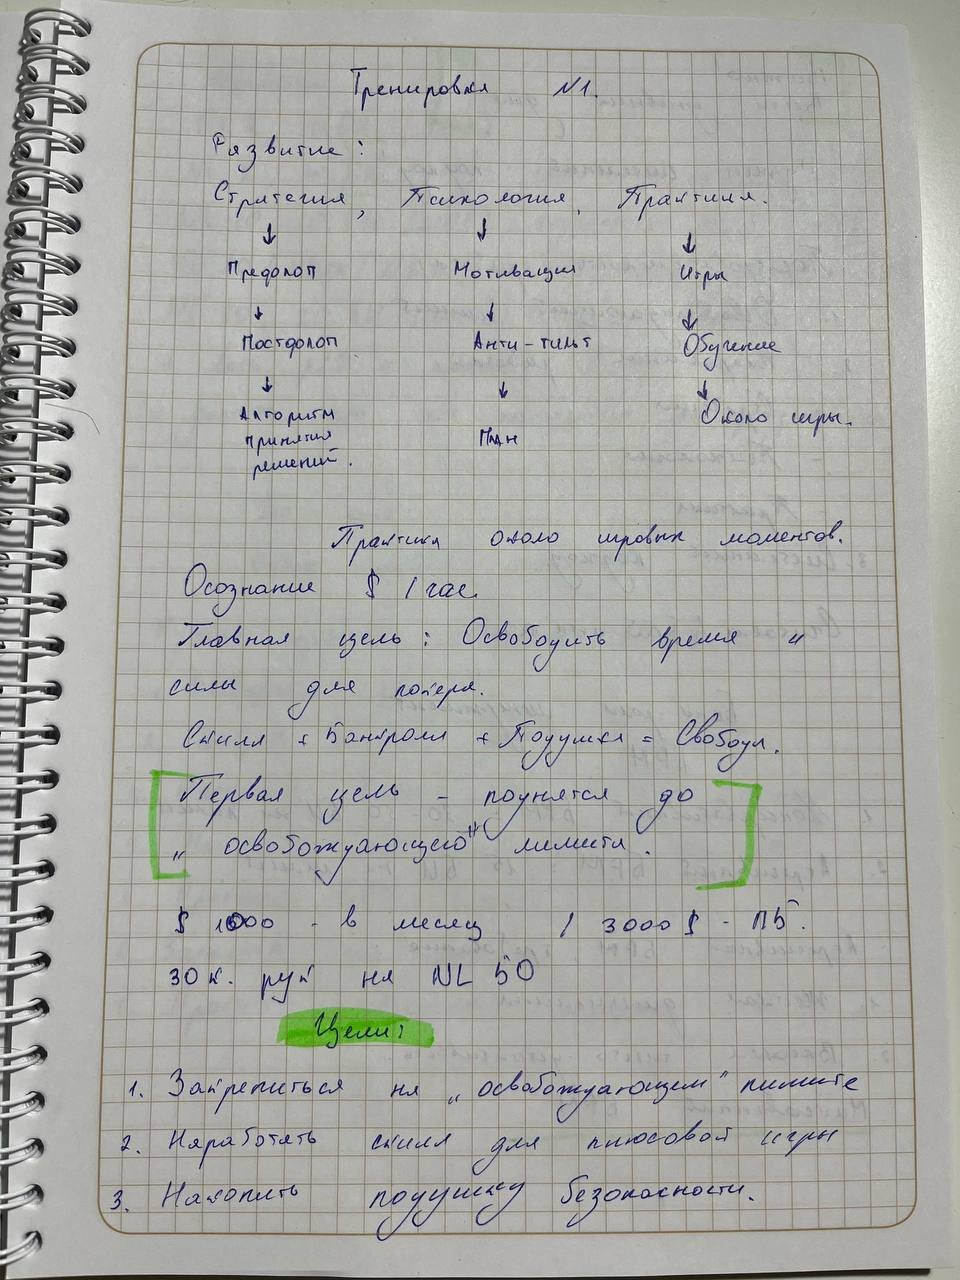 Тренировка №1.
Развитие:
Стратегия, Психология, Практика.
↓ ↓ ↓
Префлоп Мотивация Игры
↓ ↓ ↓
Постфлоп Анти-тильт Обучение
↓ ↓ ↓
Алгоритм План Около игры.
принятия
решений.
Практика около игровых моментов.
Осознание $ / час.
Главная цель: Освободить время и
силы для покера.
Скилл + Банкролл + Подушка = Свобода.
Первая цель - поднятся до
„освобождающего" лимита.
$ 1000 - в месяц / 3000$ - ПБ.
30к. рук на NL 50
Цели:
1. Закрепиться на „освобождающем" лимите
2. Наработать скилл для плюсовой игры
3. Накопить подушку безопасности.